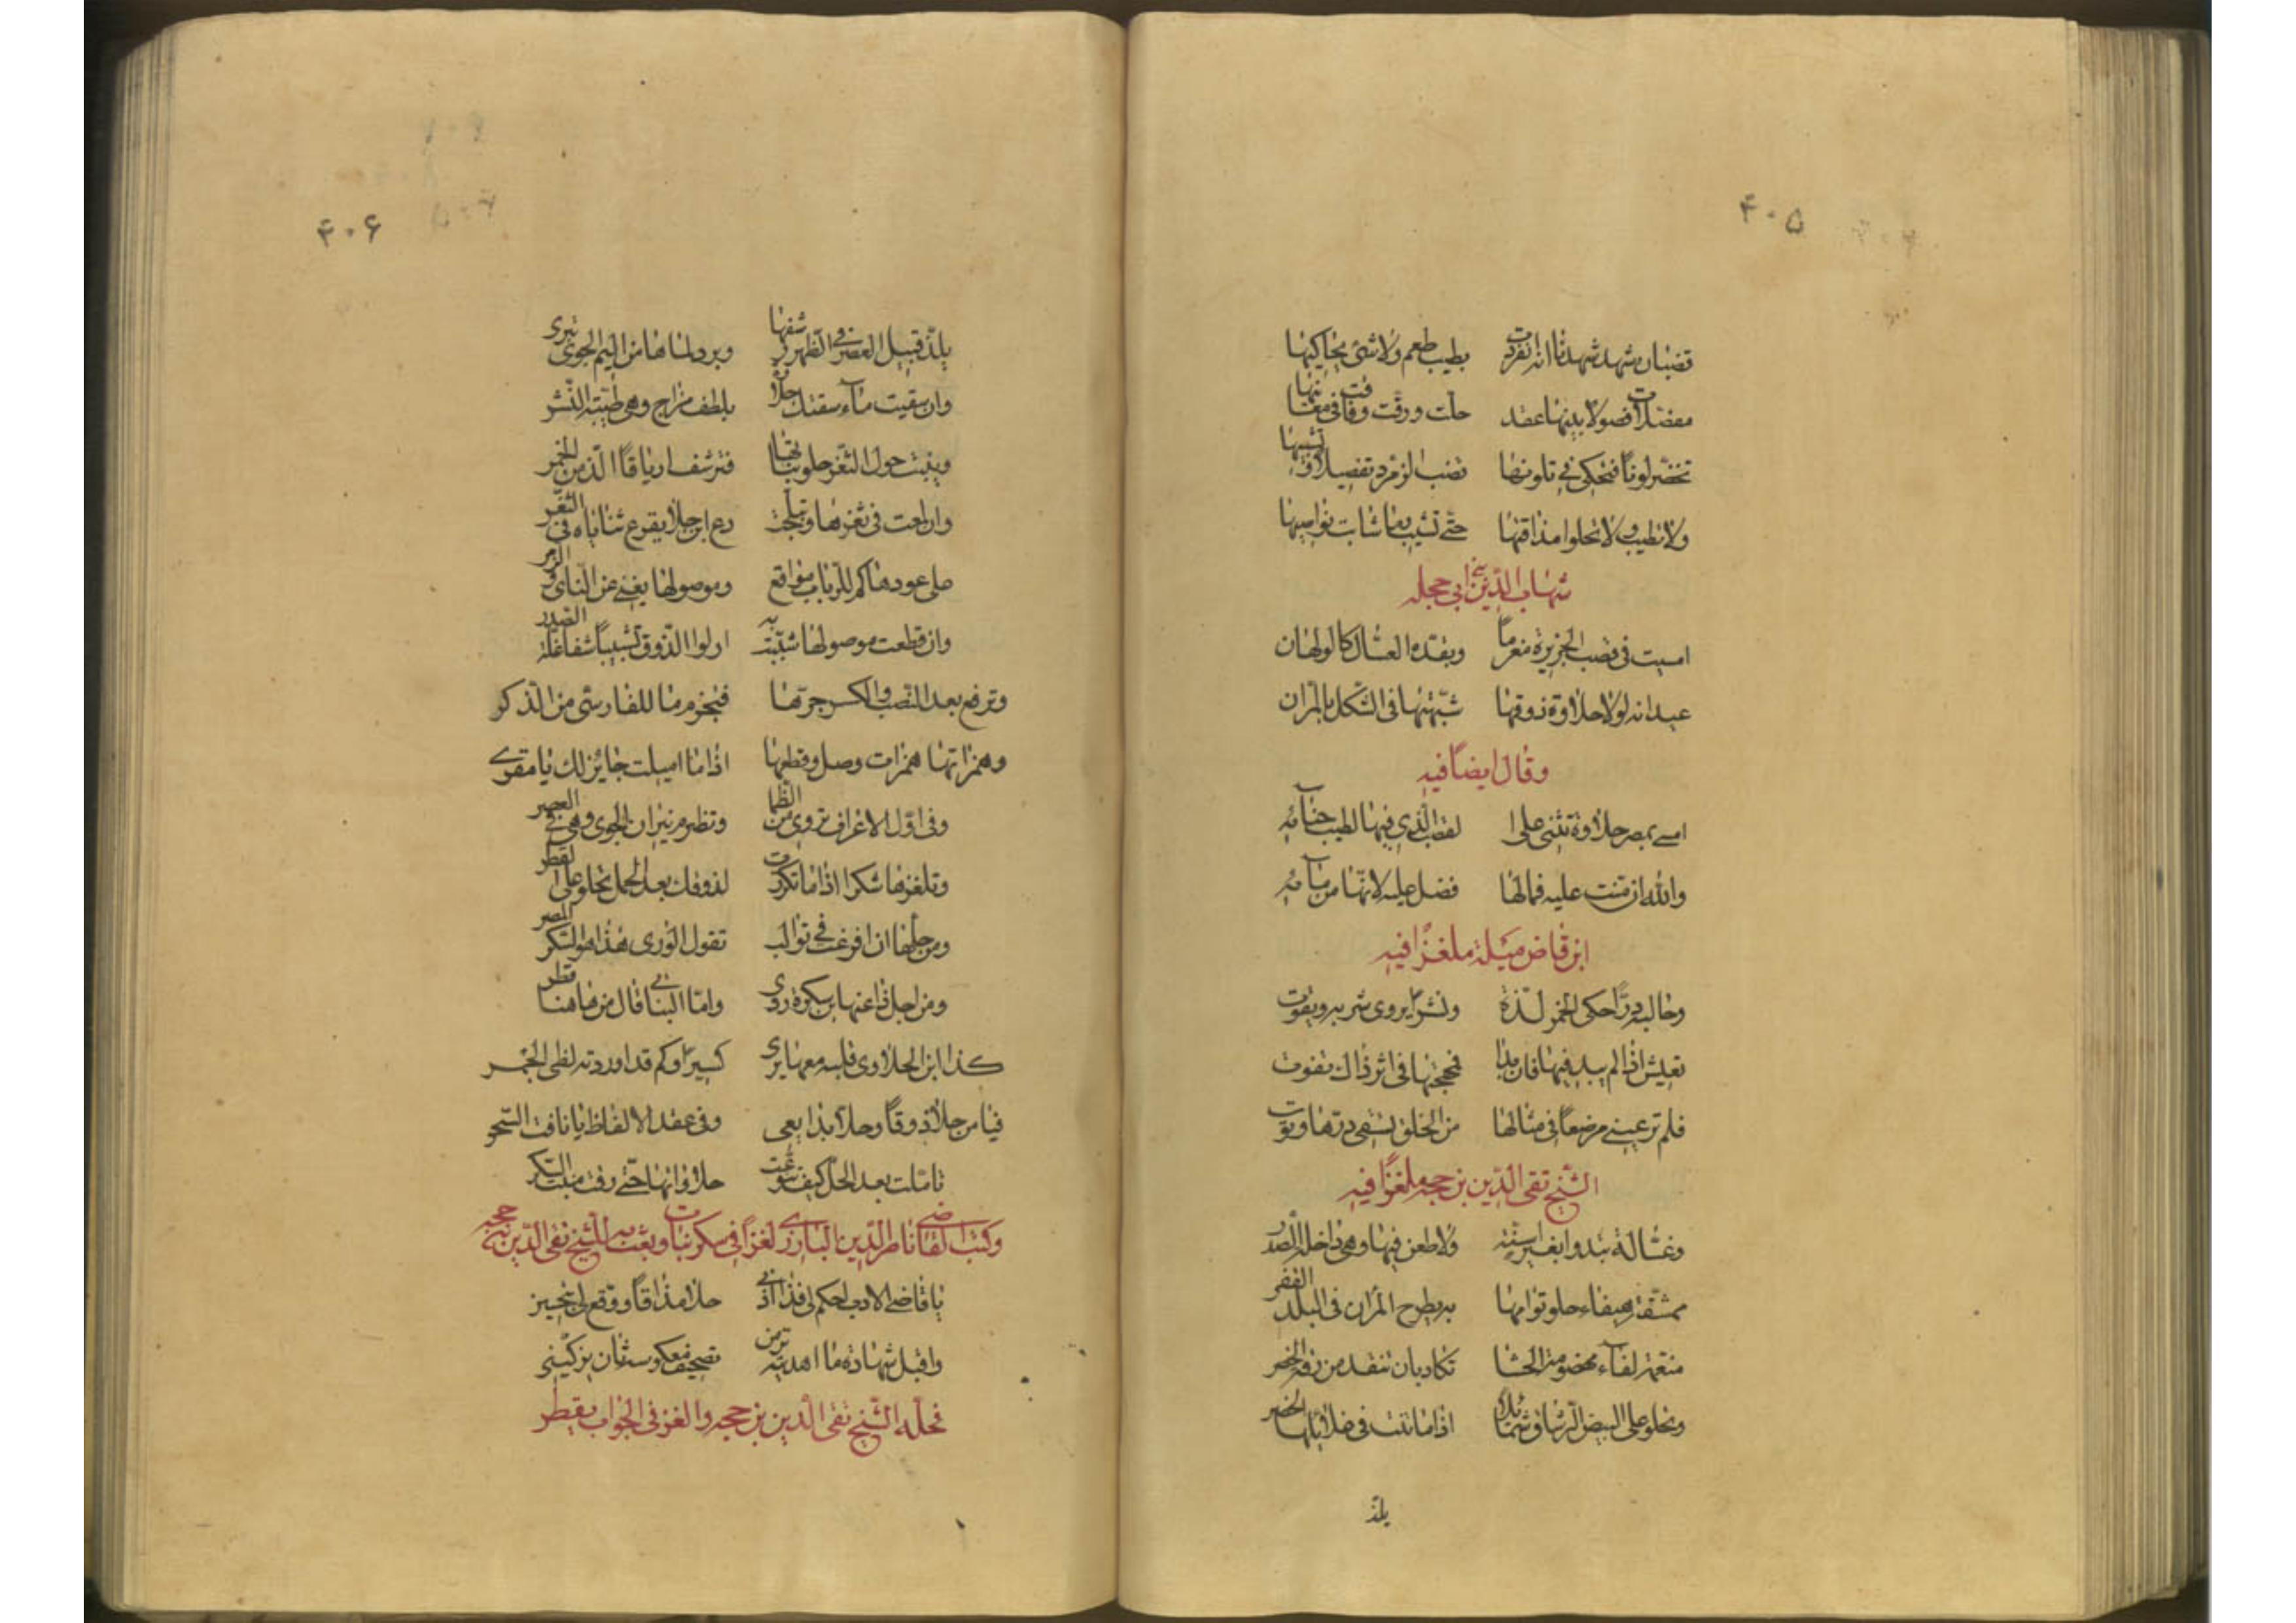 ۴۰۵
قضبان شهد شهدنا انها انفردت بطيب طعم ولا شئ يحاكيها
مفصلات فصولا بينها عقد حلت ورقت وفاقت في معانيها
تخضر لونا فتحكى في تلونها قضب الزمرد تفصيلا وتشبيها
ولا تطيب ولا تحلوا مذاقتها حتى تشيب بما شابت نواصيها
شهاب الدين بن ابي حجله
امسيت في قصب الجزيرة مغرما وبقده العسال كالولهان
عيدانه لولا حلاوة ذوقها شبهتها في الشكل بالمران
وقال ايضا فيه
امسى بمصر حلاوة تثنى على القصب الذي فيها لطيب جنائه
والله ان منت عليه فما لها فضل عليه لانها من مائه
ابن قاض ميله ملغزا فيه
وحالبة درا حكى الخمر لذة ونشرا يروى شربه ويقوت
تعيش اذا لم يبد فيها فان بدا فحجتها في اثر ذاك تفوت
فلم تر عيني مرضعا في مثالها من الخلق تسقى درها وتموت
الشيخ تقى الدين بن حجه ملغزا فيه
وعسالة تبدوا بغير اسنة ولا طعن فيها وهى داخلة الصدر
ممشقة هيفاء حلو قوامها به يطرح المران في البلد القفر
منعمة لفاء مهضومة الحشا تكاد بان تنقد من رقة الخصر
وتحلو على البيض الرشاق شمائلا اذا ما تثنت في غلائلها الخضر
يلذ
۴۰۶
يلذ قبيل العصر في الظهر رشفها وبرد لماها من اليم الجوى يبرى
وان سقيت ماء سقتك حلاوة بلطف مزاج وهى طيبة النشر
وينبت حول الثغر حلو نباتها فترشف ارياقا الذ من الخمر
وان لمعت في ثغرها وتبلجت دع ابن جلا يقرع ثناياه في الثغر
على عودها كم للرباب مواقع وموصولها يغنى عن الناى والزمر
وان قطعت موصولها شببت به اولوا الذوق تشبيبا شفا غلة الصدر
وترفع بعد النصب والكسر جرها فيجزم ما للفارسى من الذكر
وهمزاتها همزات وصل وقطعها اذا ما اميلت جايز لك يا مقرى
وفى اول الاعراف تروى من الظما وتظهر نيران الجوى وهى في العصر
وتلغزها شكرا اذا ما تكررت لذوقك بعد الحل تحلو على القطر
ومن حلها ان افرغت في قوالب تقول الورى هذا هو السكر المصرى
ومن اجل ذا عنها ابن سكرة روى واما النباتى قال من هاهنا قطرى
كذا ابن الحلاوى قلبه معها يرى كسيرا وكم قد اوردته لظى الجمر
فيا من حلا ذوقا وحلا بذا يعى وفى عقد الالفاظ يا نافث السحر
تاملت بعد الحل كيف تنوعت حلاواتها حتى رقت منبت السكر
وكتب القاضى ناصر الدين البارزى لغزا في سكر نبات وبعث به للشيخ تقى الدين بن حجه
يا قاضى الادب احكم لى فذا ادبى حلا مذاقا ووقع لى بتجيز
واقبل شهادة ما اهديته ترمن تصحيف معكوس ثان بتركيبى
فحله الشيخ تقى الدين بن حجه والغز في الجواب بقطر